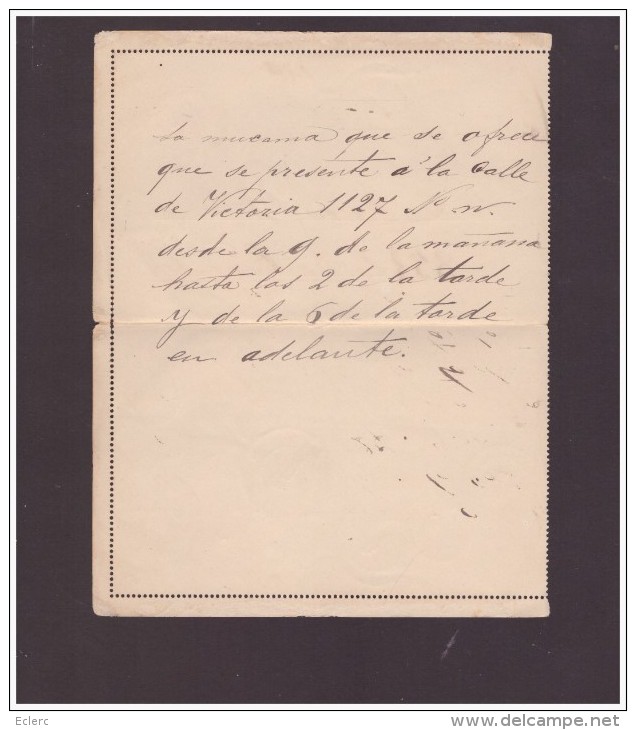 La mucama que se ofrece
que se presente á la Calle
de Victoria 1127 No
desde la 9. de la mañana
hasta las 2 de la tarde
y de la 6 de la tarde
en adelante.
Eclerc
delcampe.net